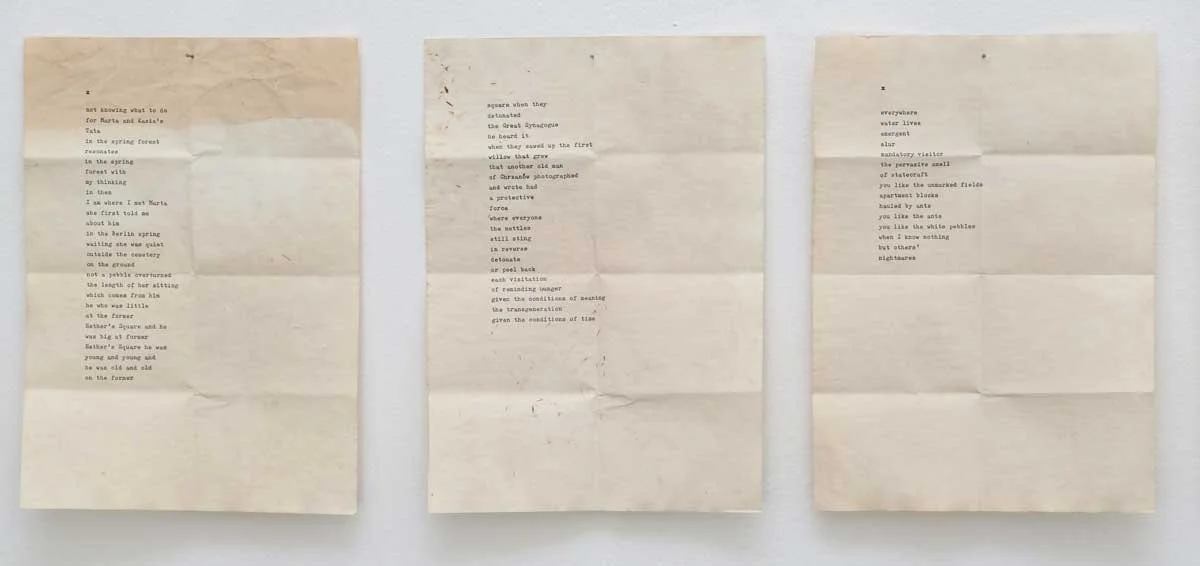 x
not knowing what to do
for Marta and Kasia's
Tata
in the spring forest
resonates
in the spring
forest with
my thinking
in then
I am where I met Marta
she first told me
about him
in the Berlin spring
waiting she was quiet
outside the cemetery
on the ground
not a pebble overturned
the length of her sitting
which comes from him
he who was little
at the former
Esther's Square and he
was big at former
Esther's Square he was
young and young and
he was old and old
on the former
square when they
detonated
the Great Synagogue
he heard it
when they sawed up the first
willow that grew
that another old man
of Chrzanów photographed
and wrote had
a protective
force
where everyone
the nettles
still sting
in reverse
detonate
or peel back
each visitation
of reminding hunger
given the conditions of meaning
the transgeneration
given the conditions of time
x
everywhere
water lives
emergent
slur
mandatory visitor
the pervasive smell
of statecraft
you like the unmarked fields
apartment blocks
hauled by ants
you like the ants
you like the white pebbles
when I know nothing
but others'
nightmares